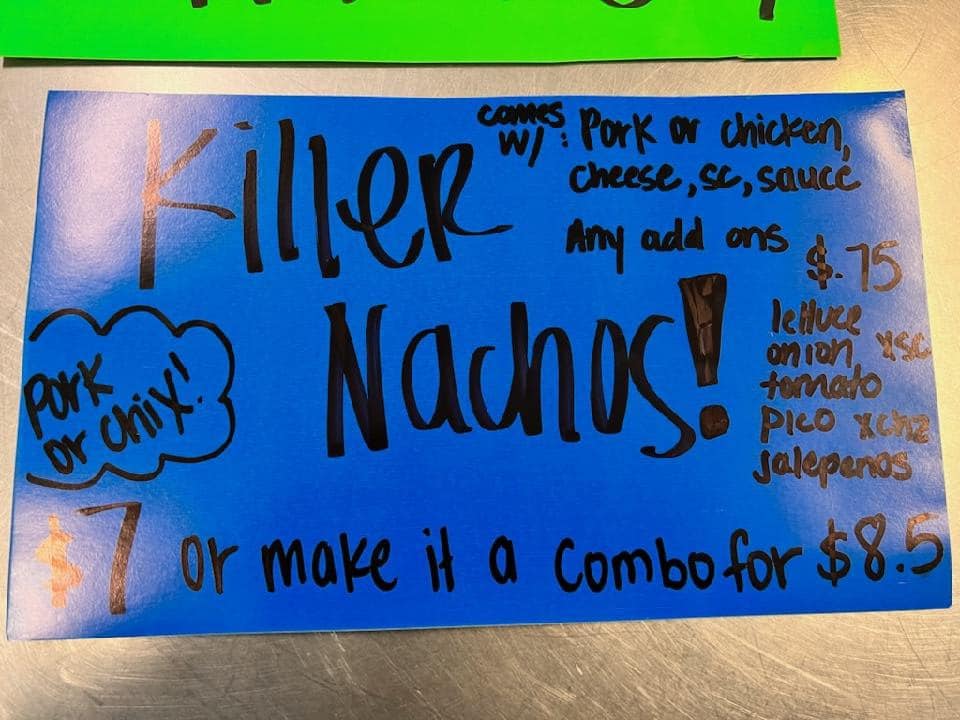 Killer
Nachos!
comes
w/: Pork or chicken,
cheese, sc, sauce
Any add ons
$.75
lettuce
onion xsc
tomato
pico xchz
jalepenos
Pork
or chix!
$7 or make it a combo for $8.5